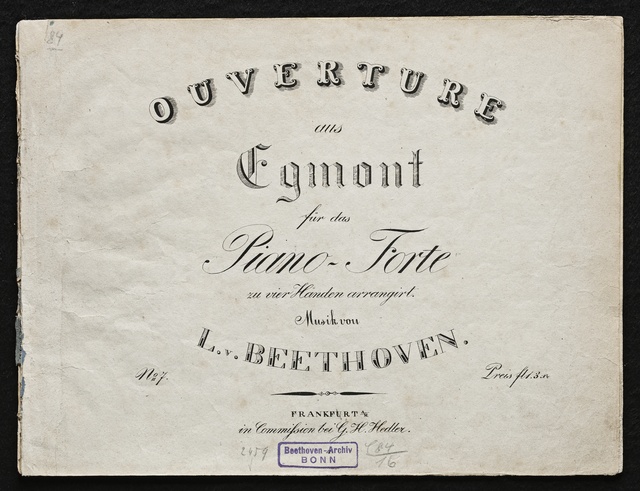 84
OUVERTURE
aus
Egmont
für das
Piano-Forte
zu vier Händen arrangirt.
Musik von
L. v. BEETHOVEN.
No 7.
Preis fl 1. 3 xr
FRANKFURT a/M
in Commißion bei G. H. Hedler.
2459
Beethoven-Archiv
BONN
C 84
16